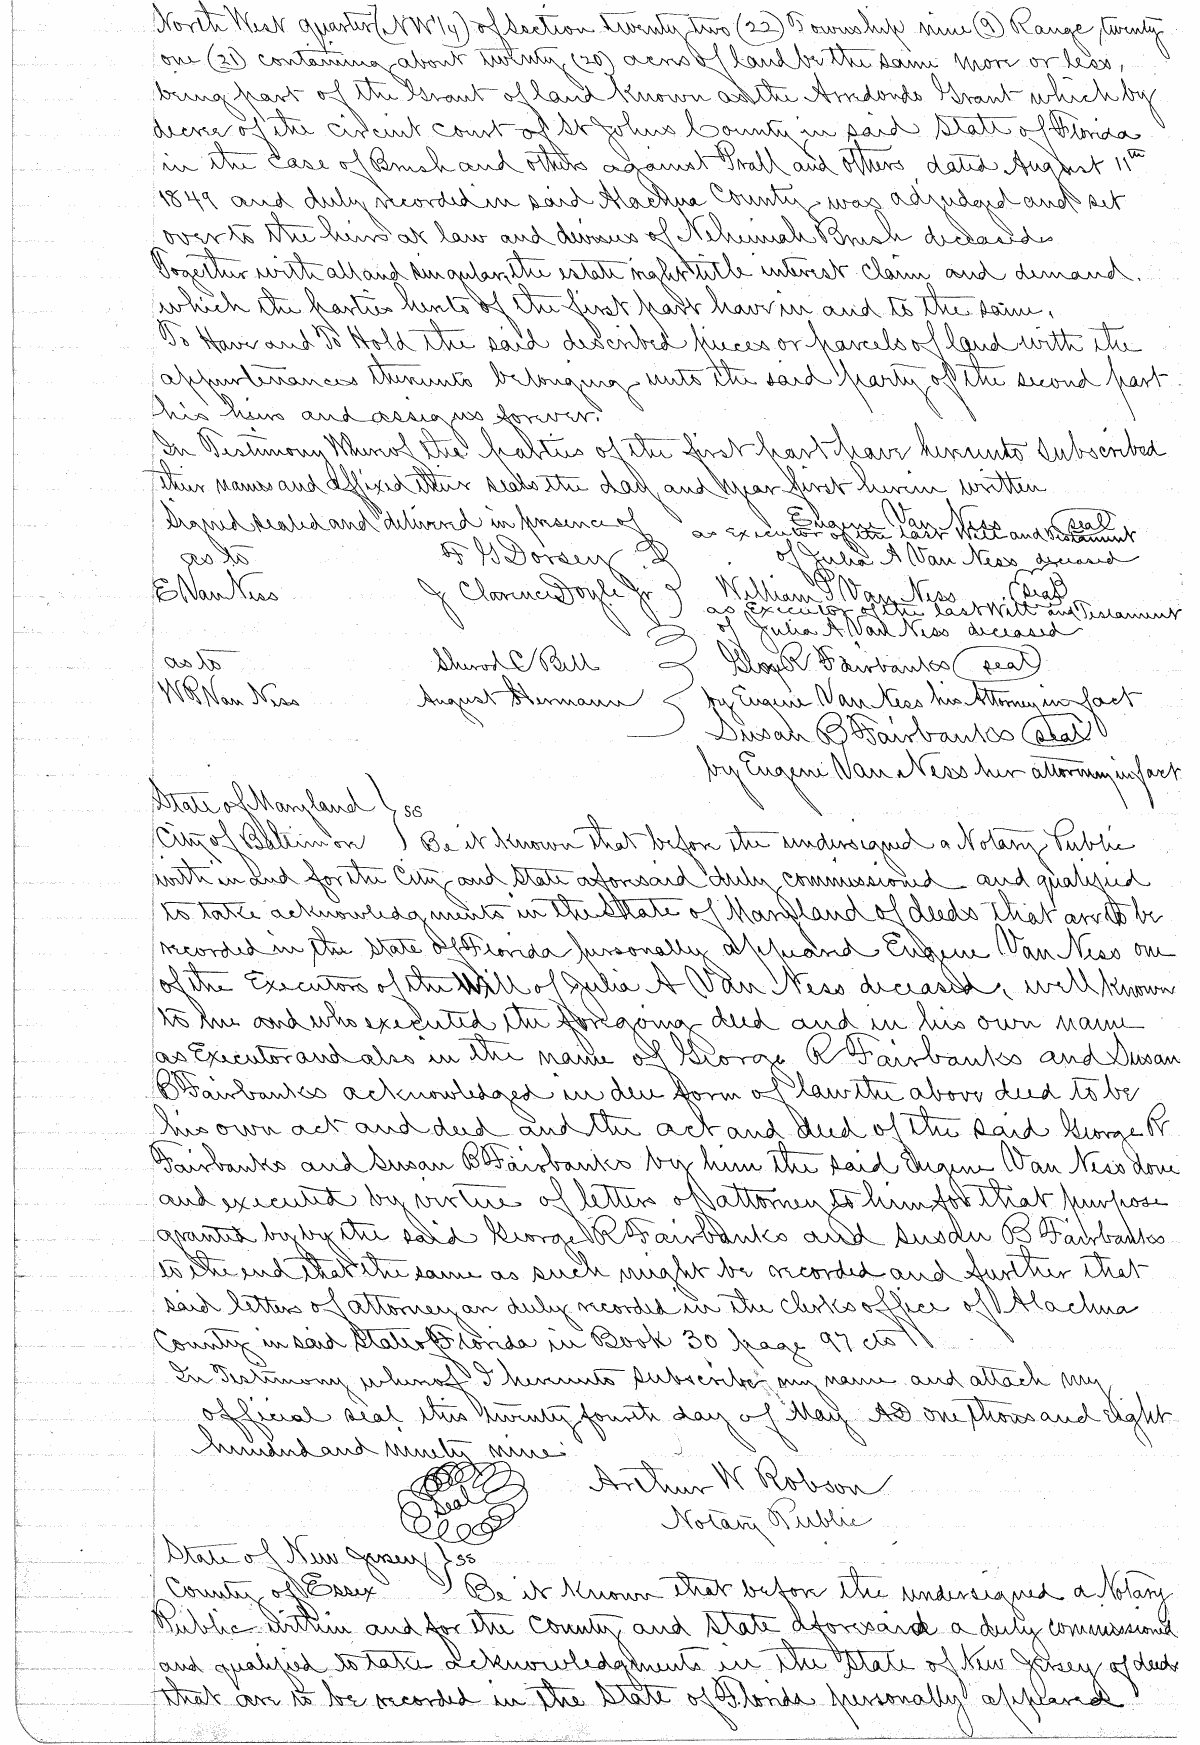 North West quarter (NW 1/4) of section twenty two (22) Township nine (9) Range twenty
one (21) containing about twenty (20) acres of land be the same more or less,
being part of the Grant of land known as the Arredondo Grant which by
decree of the circuit court of St Johns County in said State of Florida
in the case of Brush and others against Prall and others dated August 11th
1849 and duly recorded in said Alachua County was adjudged and set
over to the heirs at law and devisees of Nehemiah Brush deceased
Together with all and singular, the estate right title interest claim and demand.
which the parties hereto of the first part have in and to the same.
To Have and To Hold the said described pieces or parcels of land with the
appurtenances thereunto belonging unto the said party of the second part
his heirs and assigns forever.
In Testimony Whereof the parties of the first part have hereunto subscribed
their names and affixed their seals the day and year first herein written
Signed sealed and delivered in presence of
Eugene Van Ness (seal)
as Executor of the last Will and Testament
as to F G Dorsey of Julia A Van Ness deceased
E Van Ness J Clarence Doyle Jr William P Van Ness (seal)
as Executor of the last Will and Testament
of Julia A Van Ness deceased
as to Sherod C Bell Geo R Fairbanks (seal)
W P Van Ness August Hermann by Eugene Van Ness his Attorney in fact
Susan B Fairbanks (seal)
by Eugene Van Ness her attorney in fact
State of Maryland } ss
City of Baltimore } Be it known that before the undersigned a Notary Public
within and for the City and State aforesaid duly commissioned and qualified
to take acknowledgments in the State of Maryland of deeds that are to be
recorded in the State of Florida personally appeared Eugene Van Ness one
of the Executors of the Will of Julia A Van Ness deceased, well known
to me and who executed the foregoing deed and in his own name
as Executor and also in the name of George R Fairbanks and Susan
B Fairbanks acknowledged in due form of law the above deed to be
his own act and deed and the act and deed of the said George R
Fairbanks and Susan B Fairbanks by him the said Eugene Van Ness done
and executed by virtue of letters of attorney to him for that purpose
granted by by the said George R Fairbanks and Susan B Fairbanks
to the end that the same as such might be recorded and further that
said letters of attorney are duly recorded in the Clerks office of Alachua
County in said State of Florida in Book 30 page 97 etc
In Testimony whereof I hereunto subscribe my name and attach my
official seal this twenty fourth day of May AD one thousand eight
hundred and ninety nine.
Seal Arthur W Robson
Notary Public
State of New Jersey } ss
County of Essex } Be it known that before the undersigned a Notary
Public within and for the County and State aforesaid a duly commissioned
and qualified to take acknowledgments in the State of New Jersey of deeds
that are to be recorded in the State of Florida personally appeared